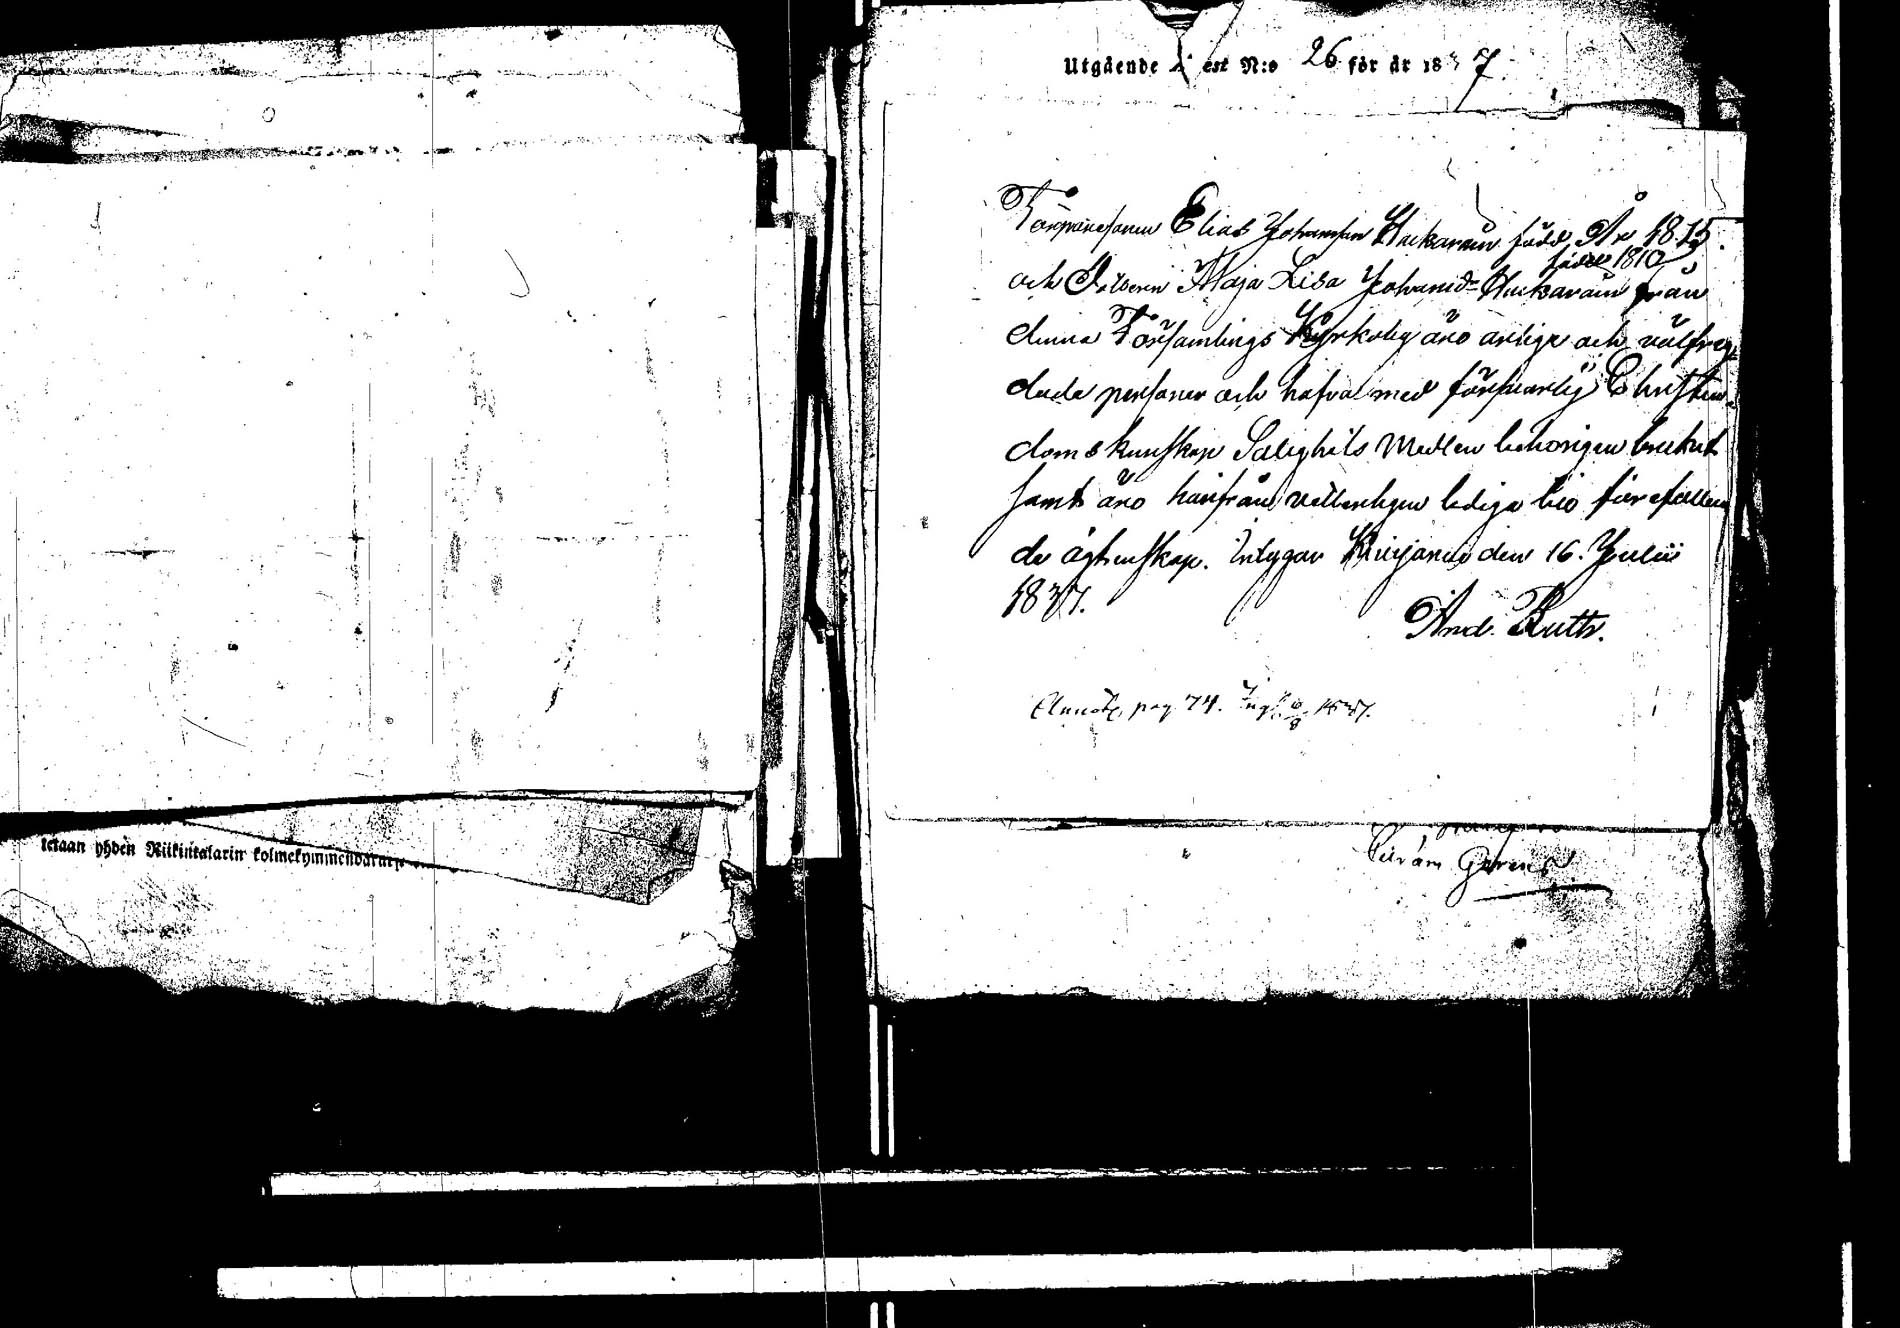 tetaan yhden Riikintalarin kolmekymmendäränes
Utgående est N:o 26 för år 1837
Torparesonen Elias Johansson Huckarain född År 1815.
född 1810
och Maja Lisa Johansd:r Huckarain från
denna Församlings Kyrkoby äro ärliga och välfrey-
dade personer och hafva med försvarlig Christen-
domskunskap Salighets Medlen behörigen brukat
samt äro härifrån vetterligen lediga till förefallen
de ägtenskap. Intygar den 16. Julii
1837.
And. Ruth.
Annot. pag 74. 1837.